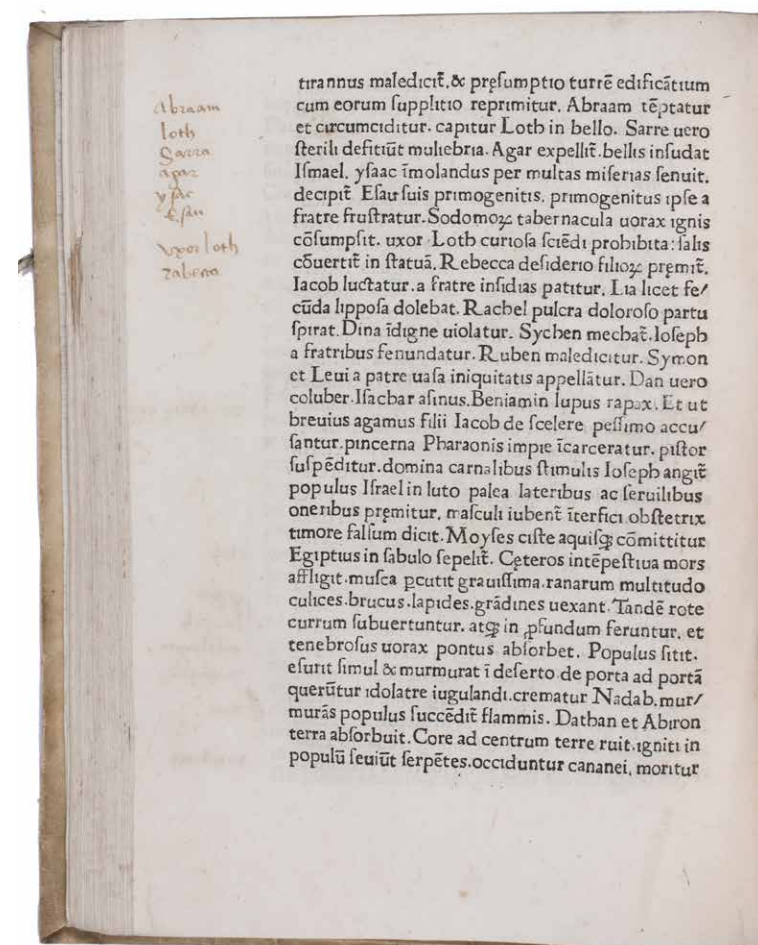 Abraam
loth
Sarra
agar
ysac
Esau
vxor loth
rabecca
tirannus maledicit̄.& pręsumptio turrē edificātium
cum eorum supplitio reprimitur. Abraam tēptatur
et circumciditur. capitur Loth in bello. Sarre uero
sterili defitiūt muliebria. Agar expellit̄.bellis insudat
Ismael. ysaac īmolandus per multas miserias senuit.
decipit̄ Esau suis primogenitis. primogenitus ipse a
fratre frustratur. Sodomoꝝ tabernacula uorax ignis
cōsumpsit. uxor Loth curiosa sciēdi prohibita: salis
cōuertit̄ in statuā. Rebecca desiderio filioꝝ pręmit̄.
Iacob luctatur. a fratre insidias patitur. Lia licet fe/
cūda lipposa dolebat. Rachel pulcra doloroso partu
spirat. Dina īdigne uiolatur. Sychen mechat̄. Ioseph
a fratribus fenundatur. Ruben maledicitur. Symon
et Leui a patre uasa iniquitatis appellātur. Dan uero
coluber. Isachar asinus. Beniamin lupus rapax. Et ut
breuius agamus filii Iacob de scelere pessimo accu/
santur. pincerna Pharaonis impie īcarceratur. pistor
suspēditur. domina carnalibus stimulis Ioseph angit̄
populus Israel in luto palea lateribus ac seruilibus
oneribus pręmitur. masculi iubent̄ īterfici. obstetrix
timore falsum dicit. Moyses ciste aquisqꝫ cōmittitur
Egiptius in sabulo sepelit̄. Cęteros intēpestiua mors
affligit. musca ꝑcutit grauissima. ranarum multitudo
culices. brucus. lapides. grādines uexant. Tandē rote
currum subuertuntur. atqꝫ in ꝓfundum feruntur. et
tenebrosus uorax pontus absorbet. Populus sitit.
esurit simul & murmurat ī deserto de porta ad portā
querūtur idolatre iugulandi. crematur Nadab. mur/
murās populus succēdit̄ flammis. Dathan et Abiron
terra absorbuit. Core ad centrum terre ruit. igniti in
populū seuiūt serpētes. occiduntur cananei, moritur